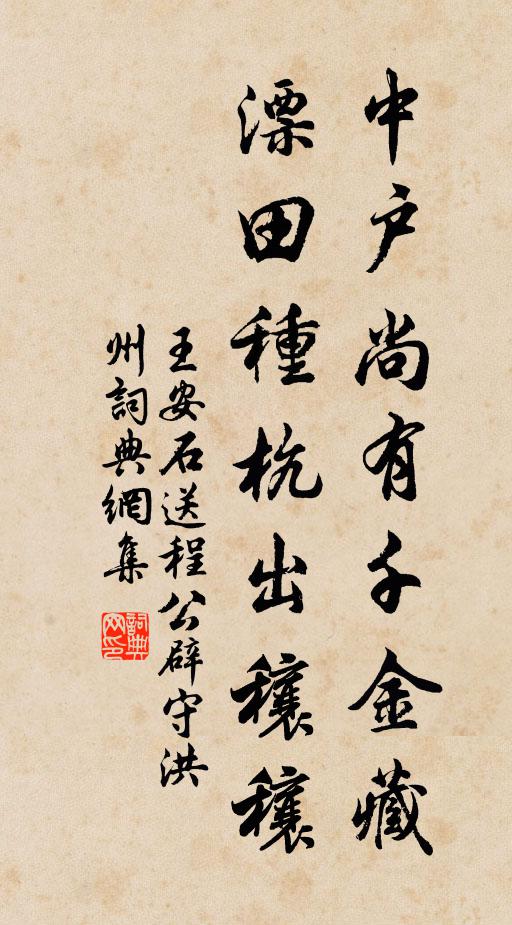 中户尚有千金藏
漂田種杭出穰穰
王安石送程公辟守洪
州詞典網集
詞典网印